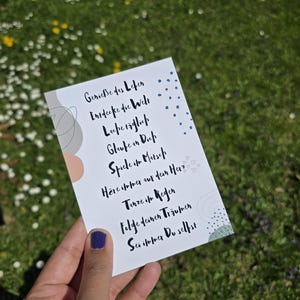 Genieße das Leben
Entdecke die Welt
Liebe täglich
Glaube an Dich
Spiele im Matsch
Höre immer auf dein Herz
Tanze im Regen
Folge deinen Träumen
Sei immer Du selbst